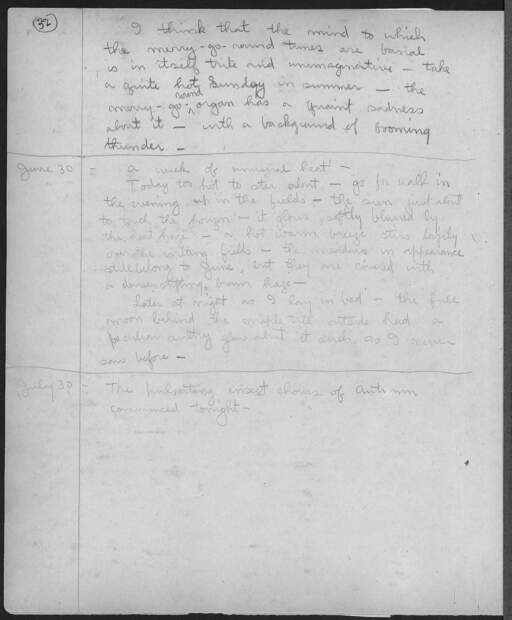 32
I think that the mind to which
the merry-go-round tunes are banal
is in itself trite and unimaginative - take
a quite hot Sunday in summer - the
merry-go-round organ has a quaint sadness
about it - with a background of booming
thunder -
June 30 - a week of unusual heat -
Today too hot to stir about - go for walk in
the evening up in the fields - the sun just about
to touch the horizon - it glows, softly blurred by
the heat haze - a hot warm breeze stirs lazily
over the fields - the meadows in appearance
still belong to June, but they are covered with
a dense brown haze -
Later at night as I lay in bed - the full
moon behind the maple tree outside had a
peculiar sultry glow about it such as I never
saw before -
July 30 - The pulsating insect chorus of autumn
commenced tonight -